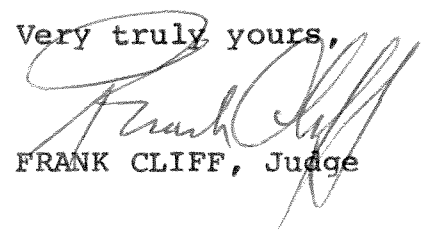 Very truly yours,
Frank Cliff
FRANK CLIFF, Judge